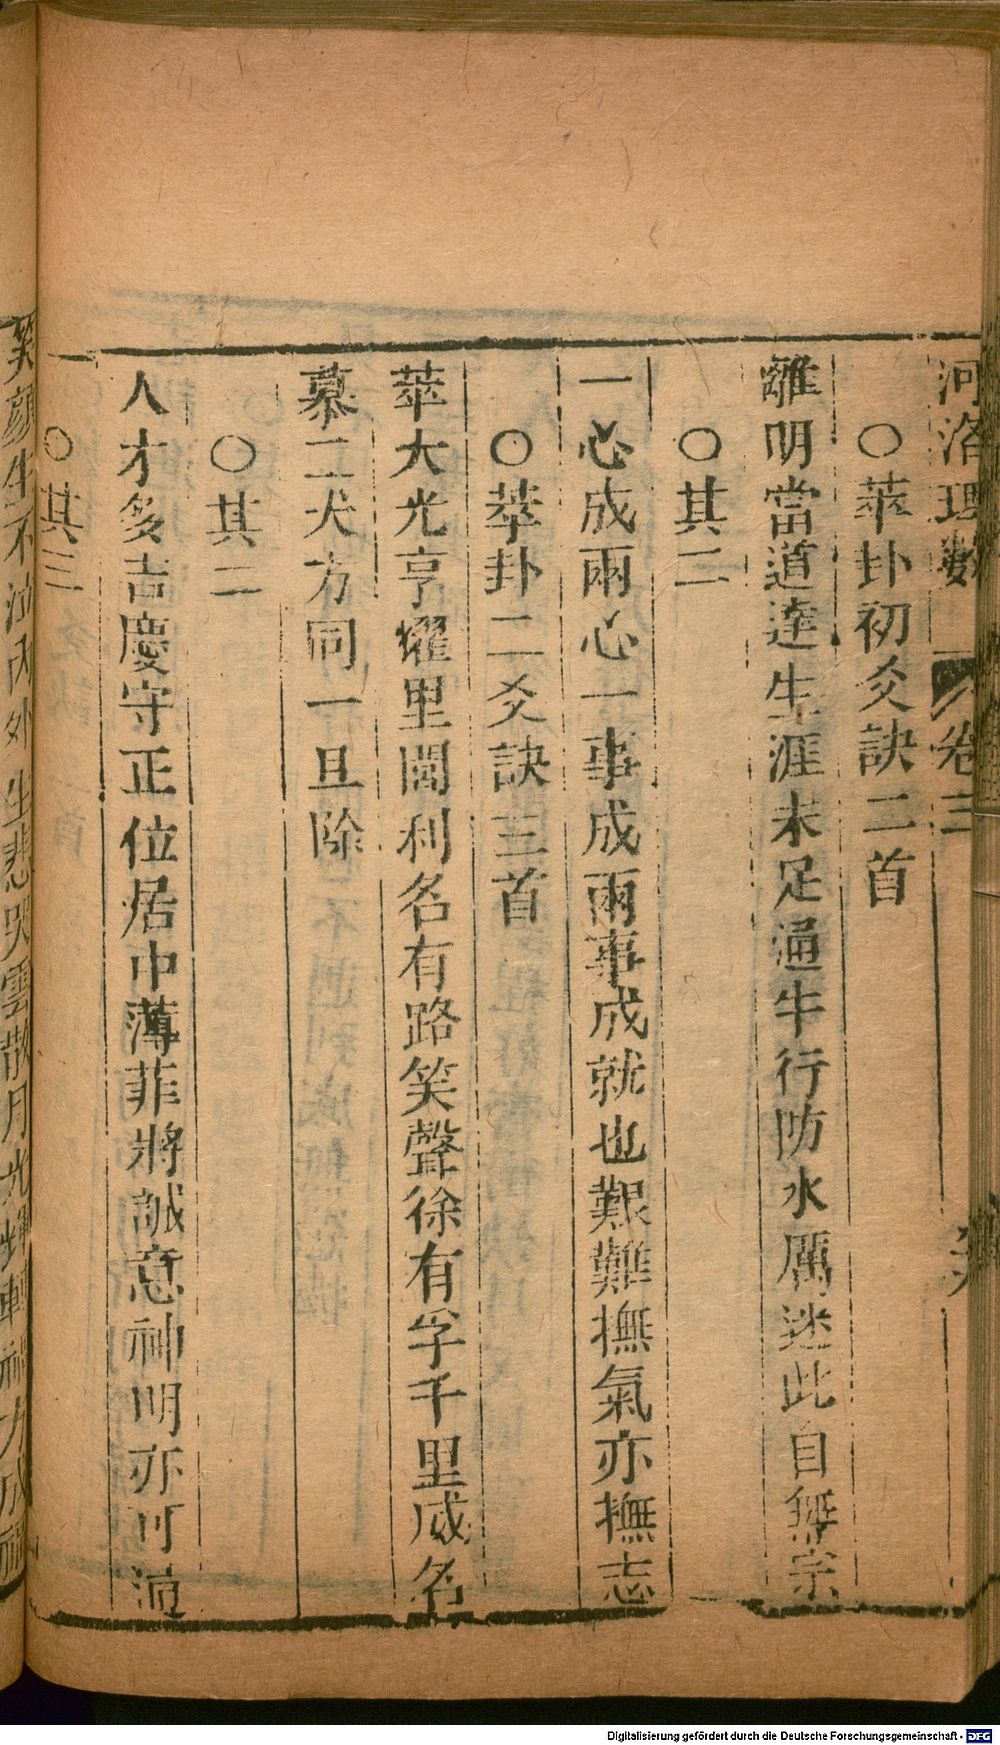 河洛理數 卷三
○萃卦初爻訣二首
離明當道達生涯未足通牛行防水厲迷此自無宗
○其二
一心成兩心一事成兩事成就也艱難撫氣亦撫志
○萃卦二爻訣三首
萃大光亨耀里閭利名有路笑聲徐有孚千里威名
慕二犬方同一旦除
○其二
人才多吉慶守正位居中薄菲將誠意神明亦可通
○其三
笑顏生不泣內外生悲哭雲散月光輝轉禍方成福
Digitalisierung gefördert durch die Deutsche Forschungsgemeinschaft - DFG